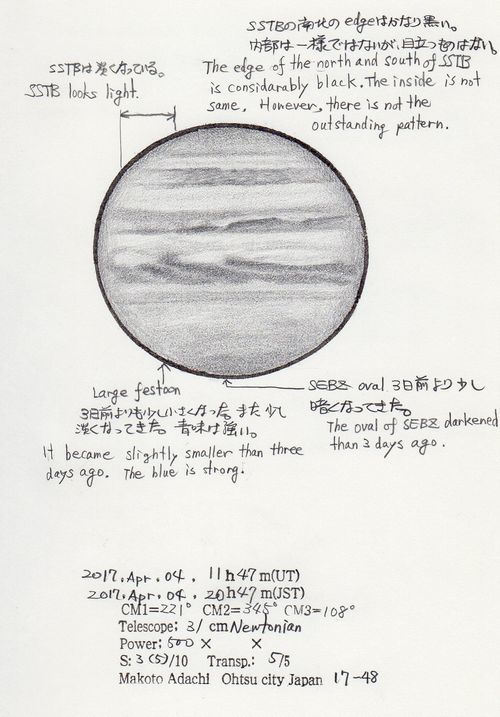 SSTBの南北のedgeはかなり黒い。
内部は一様ではないが、目立つものはない。
The edge of the north and south of SSTB
is considarably black. The inside is not
same. However, there is not the
outstanding pattern.
SSTBは淡くなっている。
SSTB looks light.
Large festoon
3日前よりも少し小さくなった。また少し
淡くなってきた。青味は強い。
It became slightly smaller than three
days ago. The blue is strong.
SEBZ oval 3日前より少し
暗くなってきた。
The oval of SEBZ darkened
than 3 days ago.
2017. Apr. 04. 11h47m(UT)
2017. Apr. 04. 20h47m(JST)
CM1=221° CM2=345° CM3=108°
Telescope: 31 cm Newtonian
Power: 500 × ×
S: 3(5)/10 Transp.: 5/5
Makoto Adachi Ohtsu city Japan 17-48